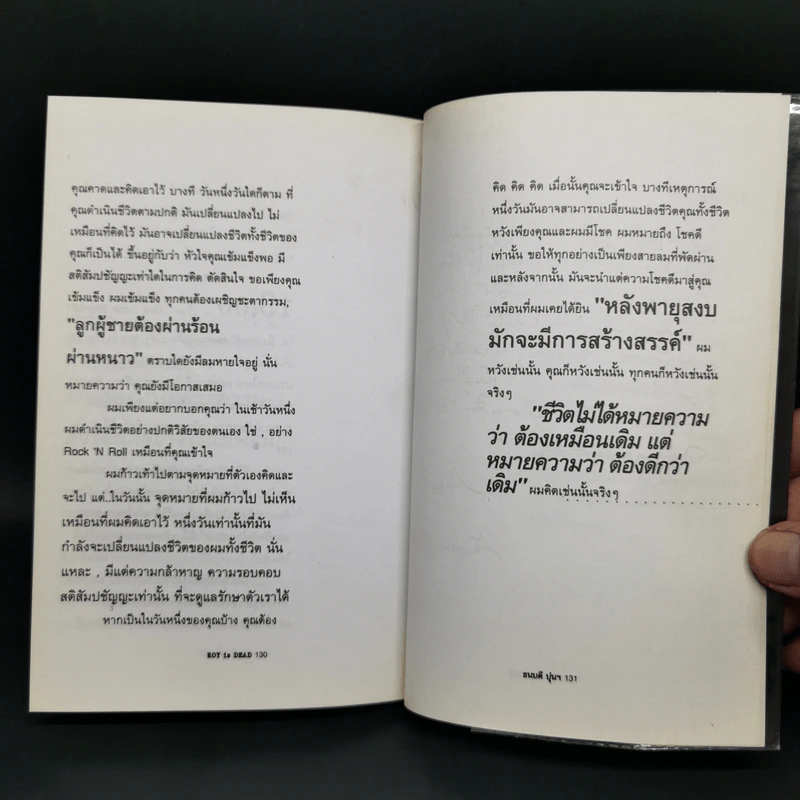 คุณคาดและคิดเอาไว้ บางที วันหนึ่งวันใดก็ตาม ที่
คุณดำเนินชีวิตตามปกติ มันเปลี่ยนแปลงไป ไม่
เหมือนที่คิดไว้ มันอาจเปลี่ยนแปลงชีวิตทั้งชีวิตของ
คุณก็เป็นได้ ขึ้นอยู่กับว่า หัวใจคุณเข้มแข็งพอ มี
สติสัมปชัญญะเท่าใดในการคิด ตัดสินใจ ขอเพียงคุณ
เข้มแข็ง ผมเข้มแข็ง ทุกคนต้องเผชิญชะตากรรม,
"ลูกผู้ชายต้องผ่านร้อน
ผ่านหนาว" ตราบใดยังมีลมหายใจอยู่ นั่น
หมายความว่า คุณยังมีโอกาสเสมอ
ผมเพียงแต่อยากบอกคุณว่า ในเช้าวันหนึ่ง
ผมดำเนินชีวิตอย่างปกติวิสัยของตนเอง ใช่ , อย่าง
Rock 'N Roll เหมือนที่คุณเข้าใจ
ผมก้าวเท้าไปตามจุดหมายที่ตัวเองคิดและ
จะไป แต่..ในวันนั้น จุดหมายที่ผมก้าวไป ไม่เห็น
เหมือนที่ผมคิดเอาไว้ หนึ่งวันเท่านั้นที่มัน
กำลังจะเปลี่ยนแปลงชีวิตของผมทั้งชีวิต นั่น
แหละ , มีแต่ความกล้าหาญ ความรอบคอบ
สติสัมปชัญญะเท่านั้น ที่จะดูแลรักษาตัวเราได้
หากเป็นในวันหนึ่งของคุณบ้าง คุณต้อง
ROY is DEAD 130
คิด คิด คิด เมื่อนั้นคุณจะเข้าใจ บางทีเหตุการณ์
หนึ่งวันมันอาจสามารถเปลี่ยนแปลงชีวิตคุณทั้งชีวิต
หวังเพียงคุณและผมมีโชค ผมหมายถึง โชคดี
เท่านั้น ขอให้ทุกอย่างเป็นเพียงสายลมที่พัดผ่าน
และหลังจากนั้น มันจะนำแต่ความโชคดีมาสู่คุณ
เหมือนที่ผมเคยได้ยิน "หลังพายุสงบ
มักจะมีการสร้างสรรค์" ผม
หวังเช่นนั้น คุณก็หวังเช่นนั้น ทุกคนก็หวังเช่นนั้น
จริงๆ
"ชีวิตไม่ได้หมายความ
ว่า ต้องเหมือนเดิม แต่
หมายความว่า ต้องดีกว่า
เดิม" ผมคิดเช่นนั้นจริงๆ
ธนบดี ปุนฯ 131